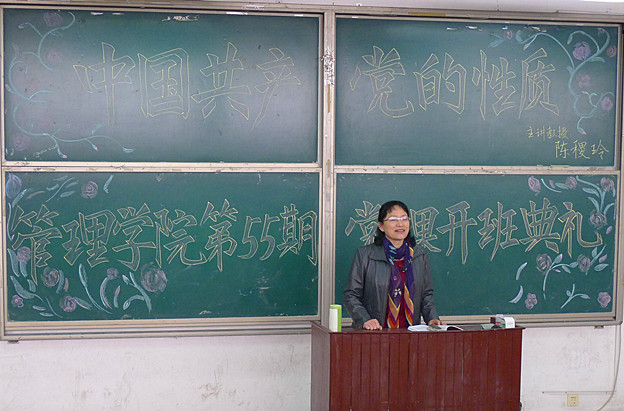 中国共产党的性质
主讲教授
陈稷玲
管理学院第55期党课开班典礼